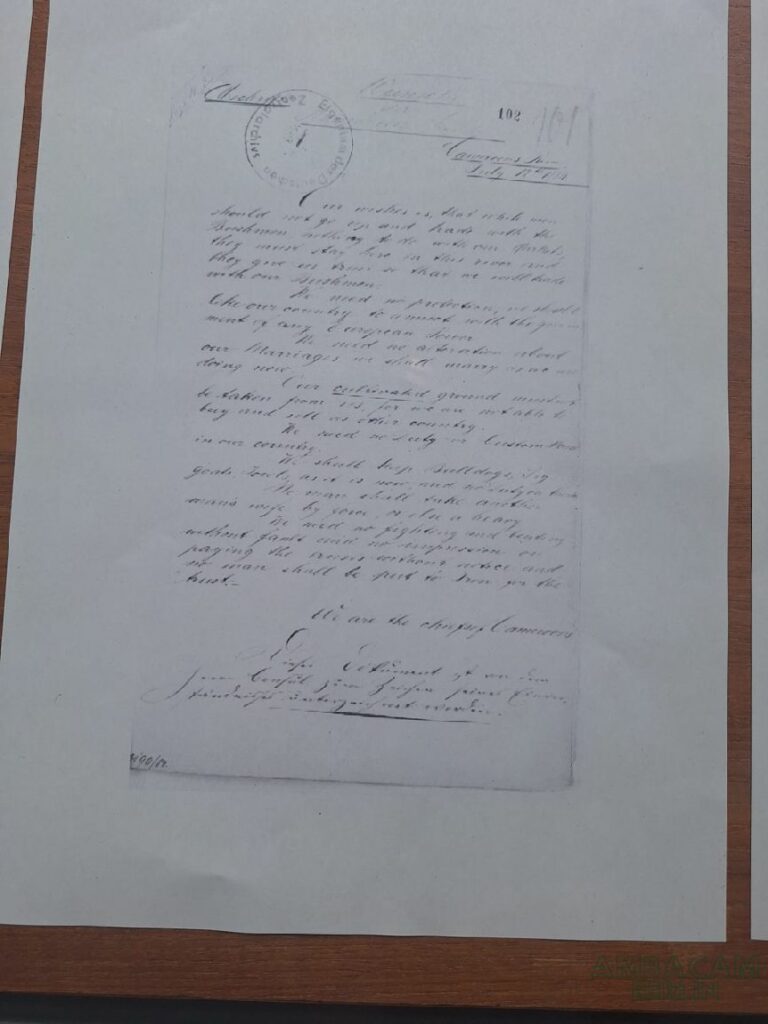 Abschrift
Eigentum der Deutschen Zentralarchivs
102
101
Cameroons River
July 12th
Our wishes is, that white men
should not go up and trade with the
Bushmen, nothing to do with our markets
they must stay here in this river and
they give us trust so that we will trade
with our Bushmen.
We need no protection, we should
like our country to annect with the govern
ment of any European Power
We need no alteration about
our Marriages we shall marry as we are
doing now
Our cultivated ground must not
be taken from us, for we are not able to
buy and sell as other country.
We need no Duty or Custom House
in our country.
We shall keep Bulldogs, Pig
goats, Fowls, as it is now, and no Duty on
No man shall take another
man's wife by force, or else a heavy
We need no fighting and beating
without fault and no impression on
paying the trusts without notice and
no man shall be put to Iron for the
trust.
We are the chiefs of Cameroons
Dieses Dokument ist von dem
Herrn Consul zum Zeichen seines Einver-
ständnisses unterzeichnet worden.
AMBACAM
BERLIN